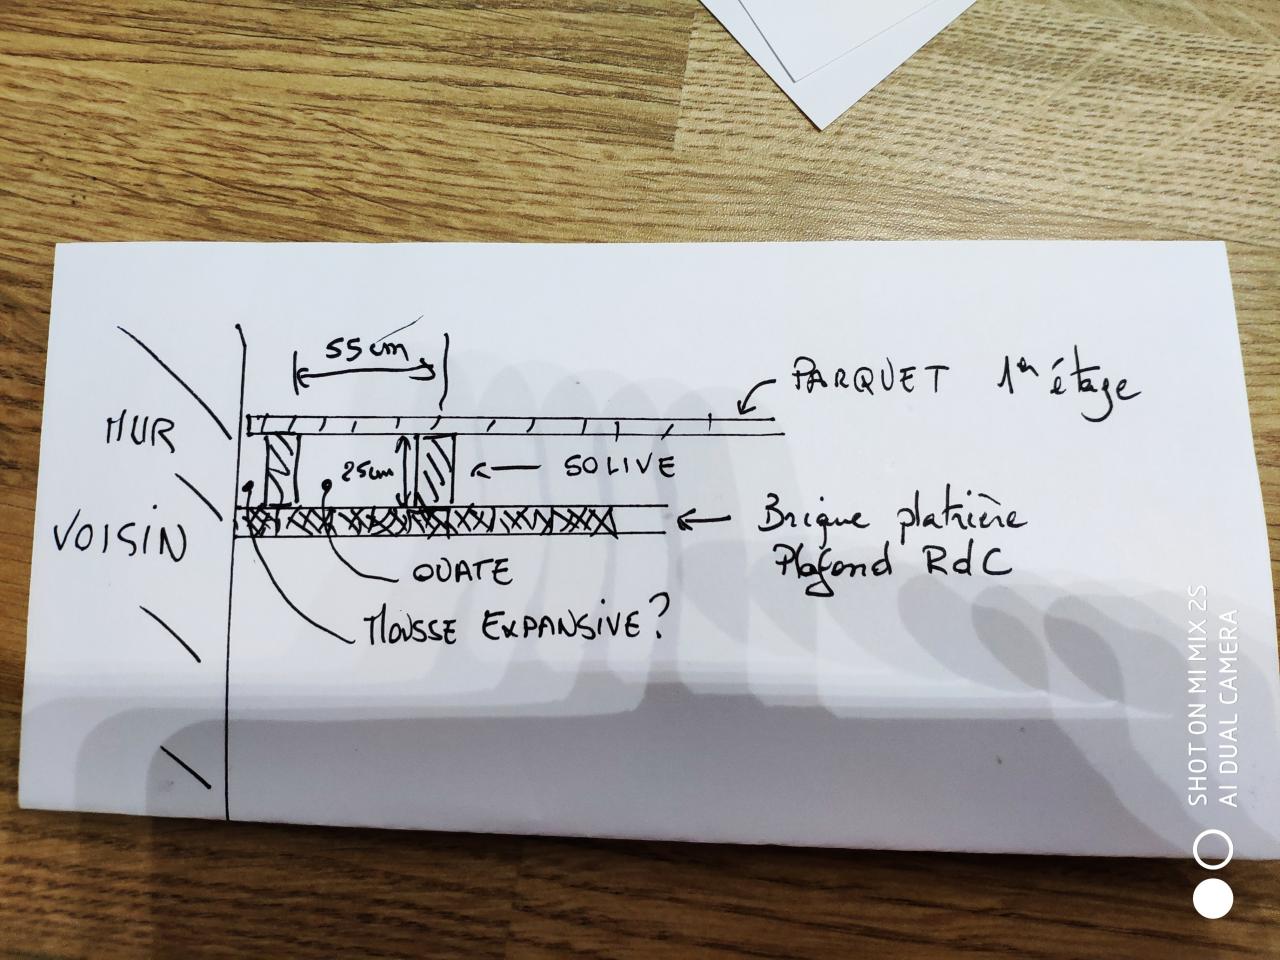 55 cm
PARQUET 1er étage
MUR
VOISIN
25cm
SOLIVE
Brique platrière
Plafond RdC
OUATE
MOUSSE EXPANSIVE ?
SHOT ON MI MIX 2S
AI DUAL CAMERA